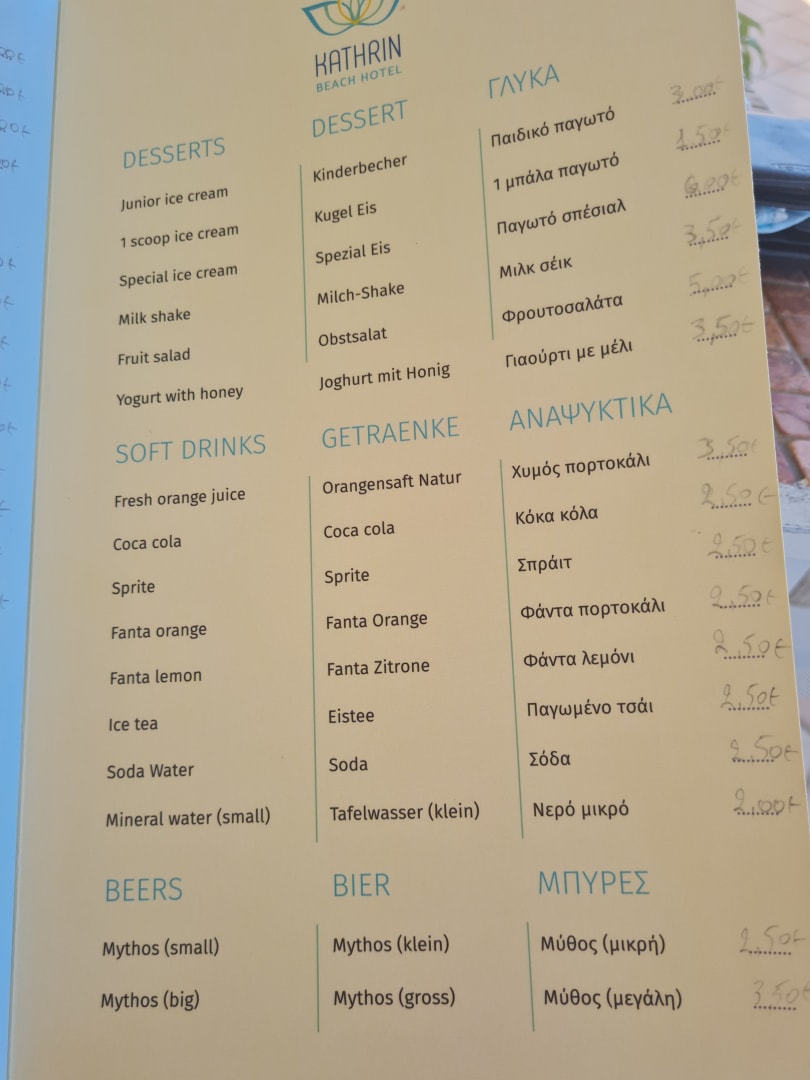 KATHRIN
BEACH HOTEL
DESSERTS DESSERT ΓΛΥΚΑ
Junior ice cream Kinderbecher Παιδικό παγωτό 3.00
1 scoop ice cream Kugel Eis 1 μπάλα παγωτό 1.50€
Special ice cream Spezial Eis Παγωτό σπέσιαλ 6,00€
Milk shake Milch-Shake Μιλκ σέικ 3,50€
Fruit salad Obstsalat Φρουτοσαλάτα 5,00€
Yogurt with honey Joghurt mit Honig Γιαούρτι με μέλι 3,50€
SOFT DRINKS GETRAENKE ΑΝΑΨΥΚΤΙΚΑ
Fresh orange juice Orangensaft Natur Χυμός πορτοκάλι 3,50€
Coca cola Coca cola Κόκα κόλα 2,50€
Sprite Sprite Σπράιτ 2,50€
Fanta orange Fanta Orange Φάντα πορτοκάλι 2,50€
Fanta lemon Fanta Zitrone Φάντα λεμόνι 2,50€
Ice tea Eistee Παγωμένο τσάι 2,50€
Soda Water Soda Σόδα 2,50€
Mineral water (small) Tafelwasser (klein) Νερό μικρό 2,00€
BEERS BIER ΜΠΥΡΕΣ
Mythos (small) Mythos (klein) Μύθος (μικρή) 2,50€
Mythos (big) Mythos (gross) Μύθος (μεγάλη) 3,50€